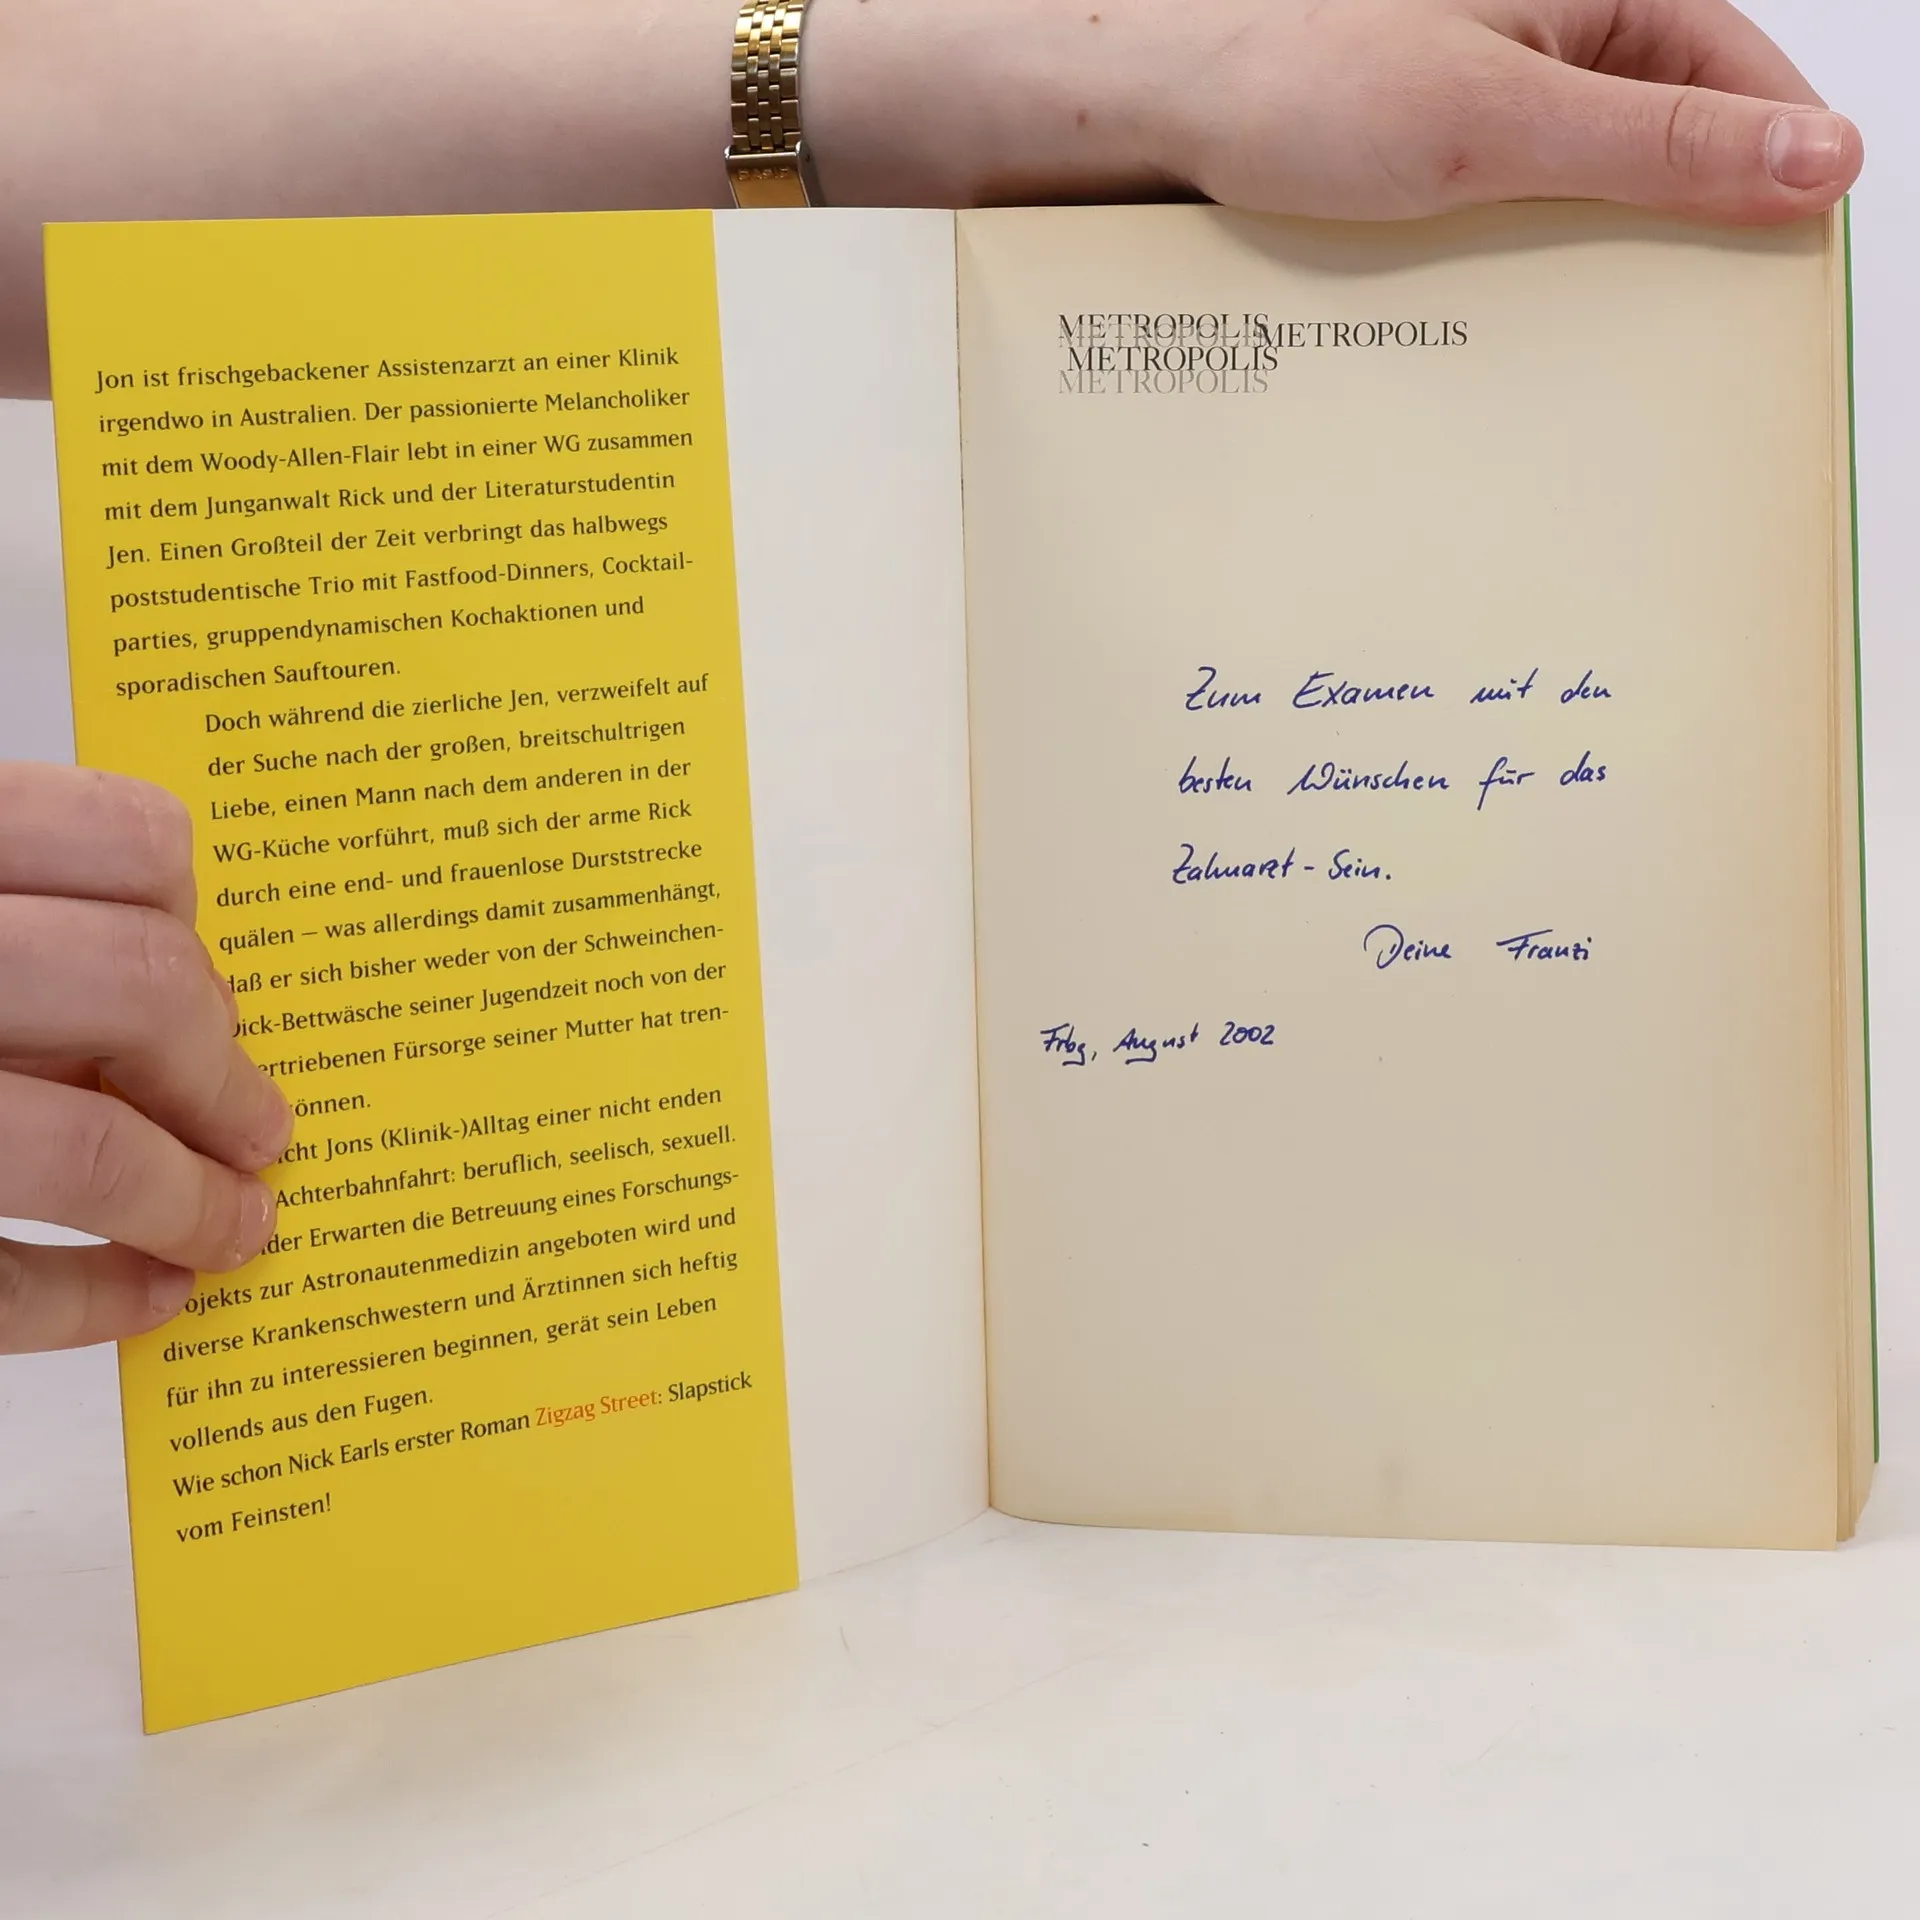 Jon ist frischgebackener Assistenzarzt an einer Klinik
irgendwo in Australien. Der passionierte Melancholiker
mit dem Woody-Allen-Flair lebt in einer WG zusammen
mit dem Junganwalt Rick und der Literaturstudentin
Jen. Einen Großteil der Zeit verbringt das halbwegs
poststudentische Trio mit Fastfood-Dinners, Cocktail-
parties, gruppendynamischen Kochaktionen und
sporadischen Sauftouren.
Doch während die zierliche Jen, verzweifelt auf
der Suche nach der großen, breitschultrigen
Liebe, einen Mann nach dem anderen in der
WG-Küche vorführt, muß sich der arme Rick
durch eine end- und frauenlose Durststrecke
quälen — was allerdings damit zusammenhängt,
daß er sich bisher weder von der Schweinchen-
Dick-Bettwäsche seiner Jugendzeit noch von der
ertriebenen Fürsorge seiner Mutter hat tren-
önnen.
icht Jons (Klinik-)Alltag einer nicht enden
Achterbahnfahrt: beruflich, seelisch, sexuell.
der Erwarten die Betreuung eines Forschungs-
ojekts zur Astronautenmedizin angeboten wird und
diverse Krankenschwestern und Ärztinnen sich heftig
für ihn zu interessieren beginnen, gerät sein Leben
vollends aus den Fugen.
Wie schon Nick Earls erster Roman Zigzag Street: Slapstick
vom Feinsten!
METROPOLIS METROPOLIS
METROPOLIS
METROPOLIS
METROPOLIS
Zum Examen mit den
besten Wünschen für das
Zahnarzt-Sein.
Deine Franzi
Frbg, August 2002